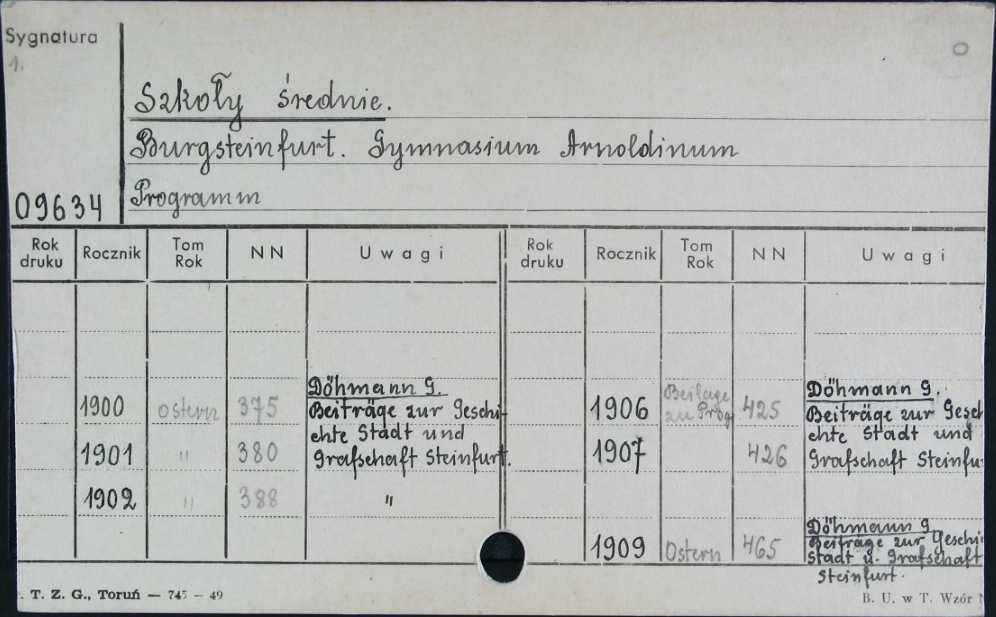 Sygnatura
1.
O
Szkoły średnie.
Burgsteinfurt. Gymnasium Arnoldinum
09634
Programm
Rok druku Rocznik Tom Rok NN Uwagi Rok druku Rocznik Tom Rok NN Uwagi
1900 Ostern 375 Döhmann G.
Beiträge zur Geschi-
chte Stadt und
1901 " 380 Grafschaft Steinfurt.
1902 " 388 "
1906 Beilage zu Prog. 425 Döhmann G.
Beiträge zur Gesch
chte Stadt und
1907 426 Grafschaft Steinfu
1909 Ostern 465 Döhmann G.
Beiträge zur Geschi
Stadt u. Grafschaft
Steinfurt.
. T. Z. G., Toruń — 745 — 49
B. U. w T. Wzór N